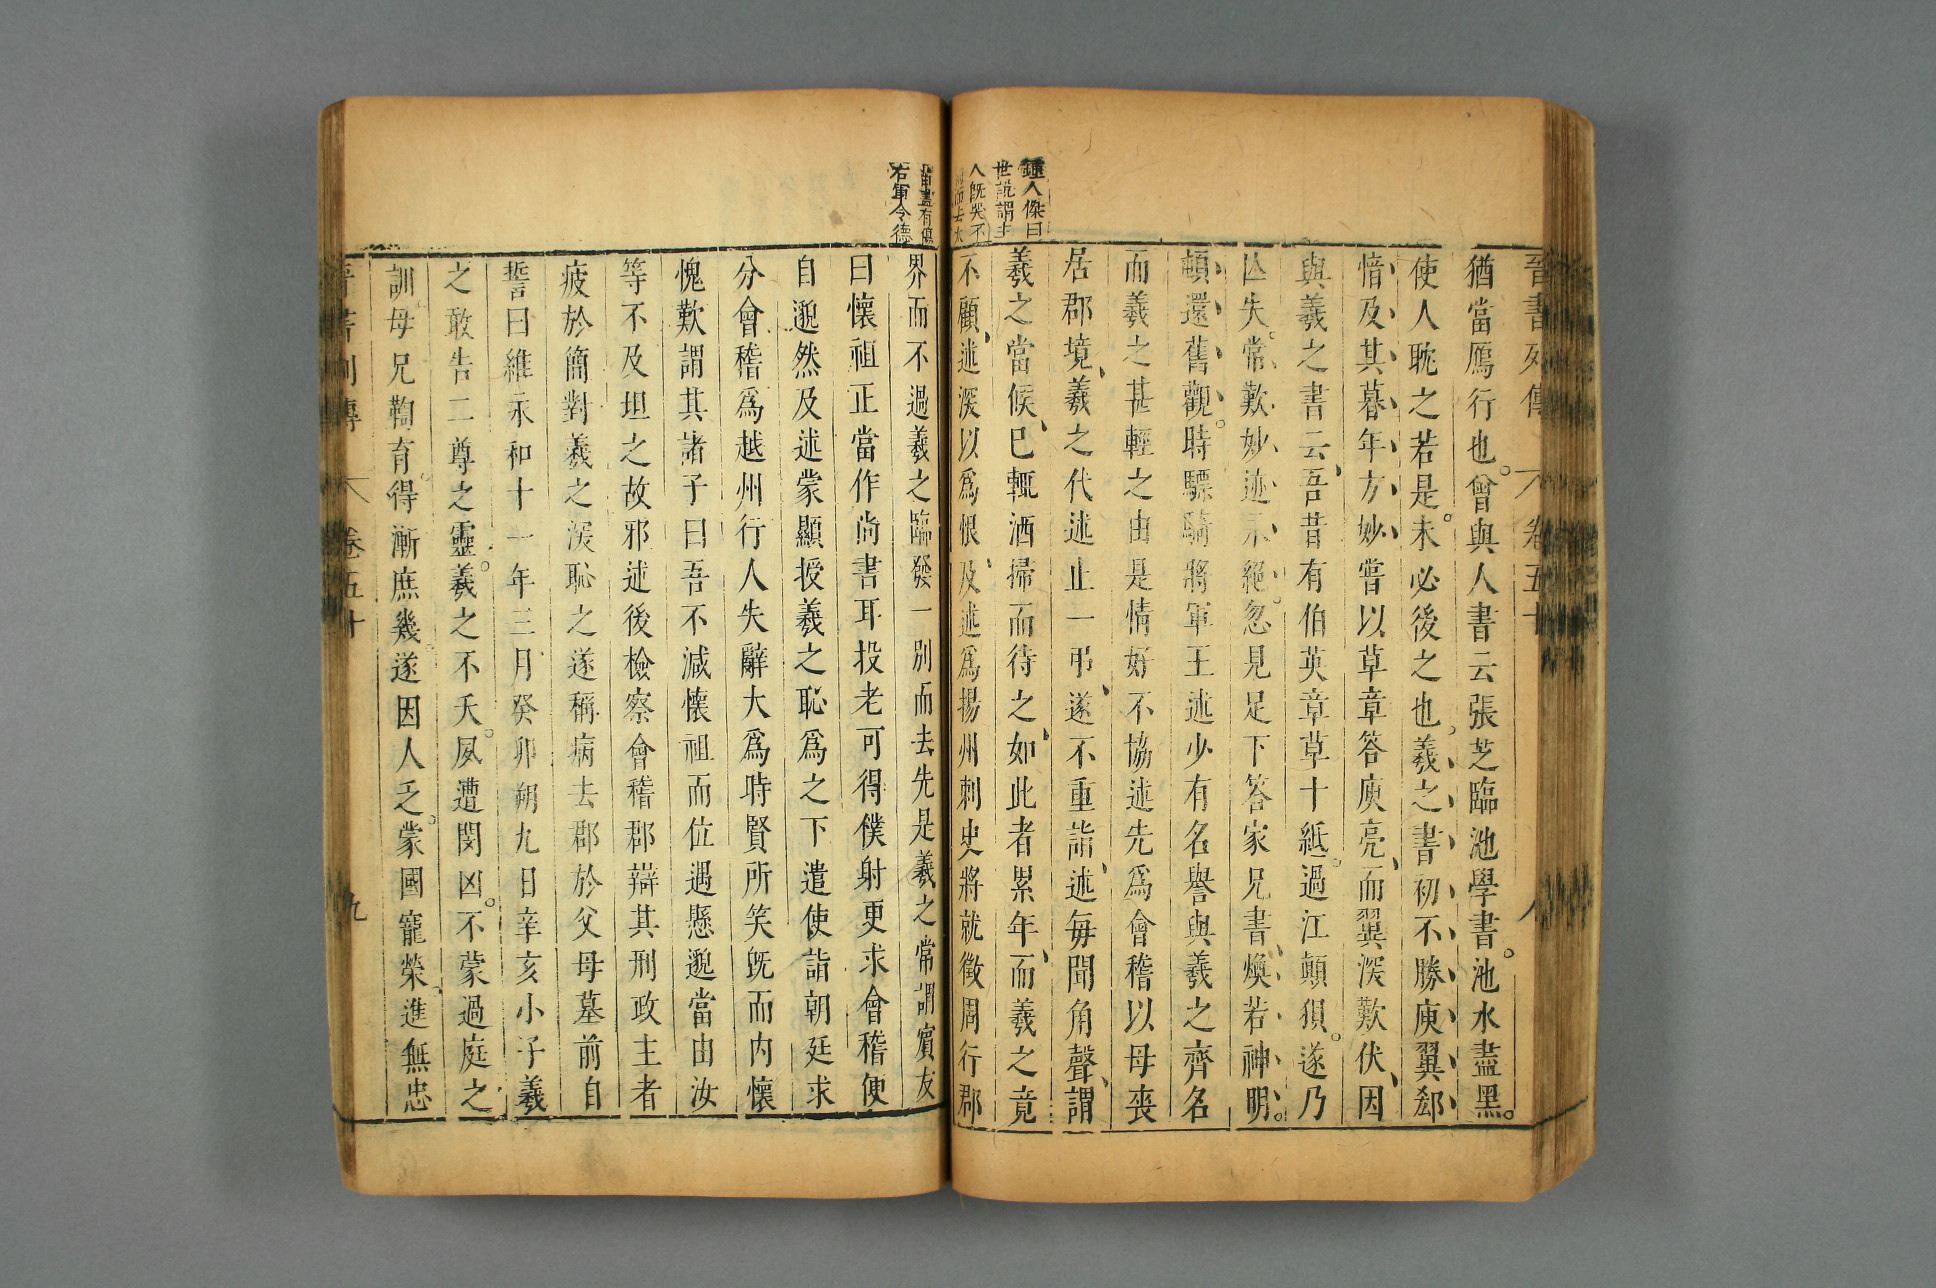 晉書列傳 卷五十 八
猶當鴈行也曾與人書云張芝臨池學書池水盡黑
使人耽之若是未必後之也羲之書初不勝庾翼郄
愔及其暮年方妙嘗以草章答庾亮而翼深歎伏因
與羲之書云吾昔有伯英章草十紙過江顛狽遂乃
亾失常歎妙迹永絕忽見足下答家兄書煥若神明
頓還舊觀時驃騎將軍王述少有名譽與羲之齊名
而羲之甚輕之由是情好不協述先爲會稽以母喪
居郡境羲之代述止一弔遂不重詣述每聞角聲謂
羲之當候已輒洒掃而待之如此者累年而羲之竟
不顧述深以爲恨及述爲揚州刺史將就徵周行郡
鍾人傑曰
世說謂主
人旣哭不
而去太
界而不過羲之臨發一別而去先是羲之常謂賓友
曰懷祖正當作尚書耳投老可得僕射更求會稽便
自邈然及述蒙顯授羲之恥爲之下遣使詣朝廷求
分會稽爲越州行人失辭大爲時賢所笑旣而內懷
愧歎謂其諸子曰吾不減懷祖而位遇懸邈當由汝
等不及坦之故邪述後檢察會稽郡辯其刑政主者
疲於簡對羲之深恥之遂稱病去郡於父母墓前自
誓曰維永和十一年三月癸卯朔九日辛亥小子羲
之敢告二尊之靈羲之不夭夙遭閔凶不蒙過庭之
訓母兄鞠育得漸庶幾遂因人乏蒙國寵榮進無忠
右軍令德
晉書列傳 卷五十 九